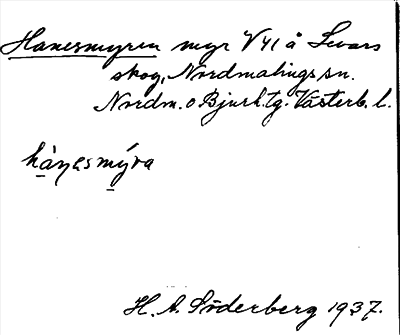 Hanesmyren myr V41 å Levars
skog, Nordmalings sn.
Nordm. o Bjurh. tg. Västerb. l.
hànesmýra
H. A. Söderberg 1937.